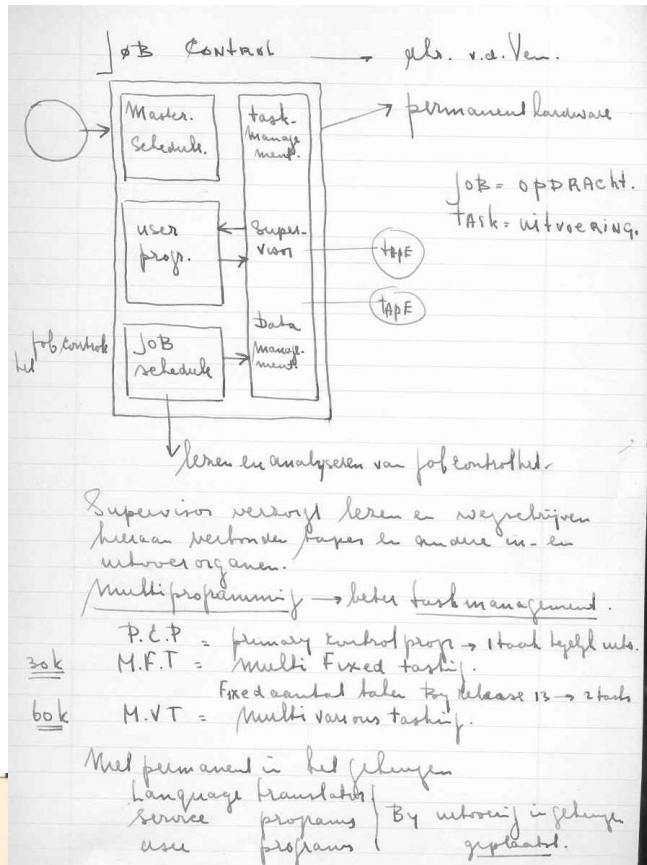 JOB CONTROL → dhr. v.d. Ven.
Master. Schedule.
task- manage ment.
permanent hardware
JOB = OPDRACHT.
TASK = UITVOERING.
user progr.
Super- visor
TAPE
TAPE
Job control
JOB schedule
Data manage- ment.
lezen en analyseren van job control
Supervisor verzorgt lezen en wegschrijven
hieraan verbonden tapes en andere in- en
uitvoer organen.
Multiprogramming → beter task management.
P.C.P = primary control progr → 1 taak tegelijk uitv.
30k M.F.T = Multi Fixed tasking.
Fixed aantal taken By release 13 → 2 tasks
60k M.V.T = Multi various tasking.
Niet permanent in het geheugen
Language translator
Service programs } By uitvoering in geheugen
user programs geplaatst.